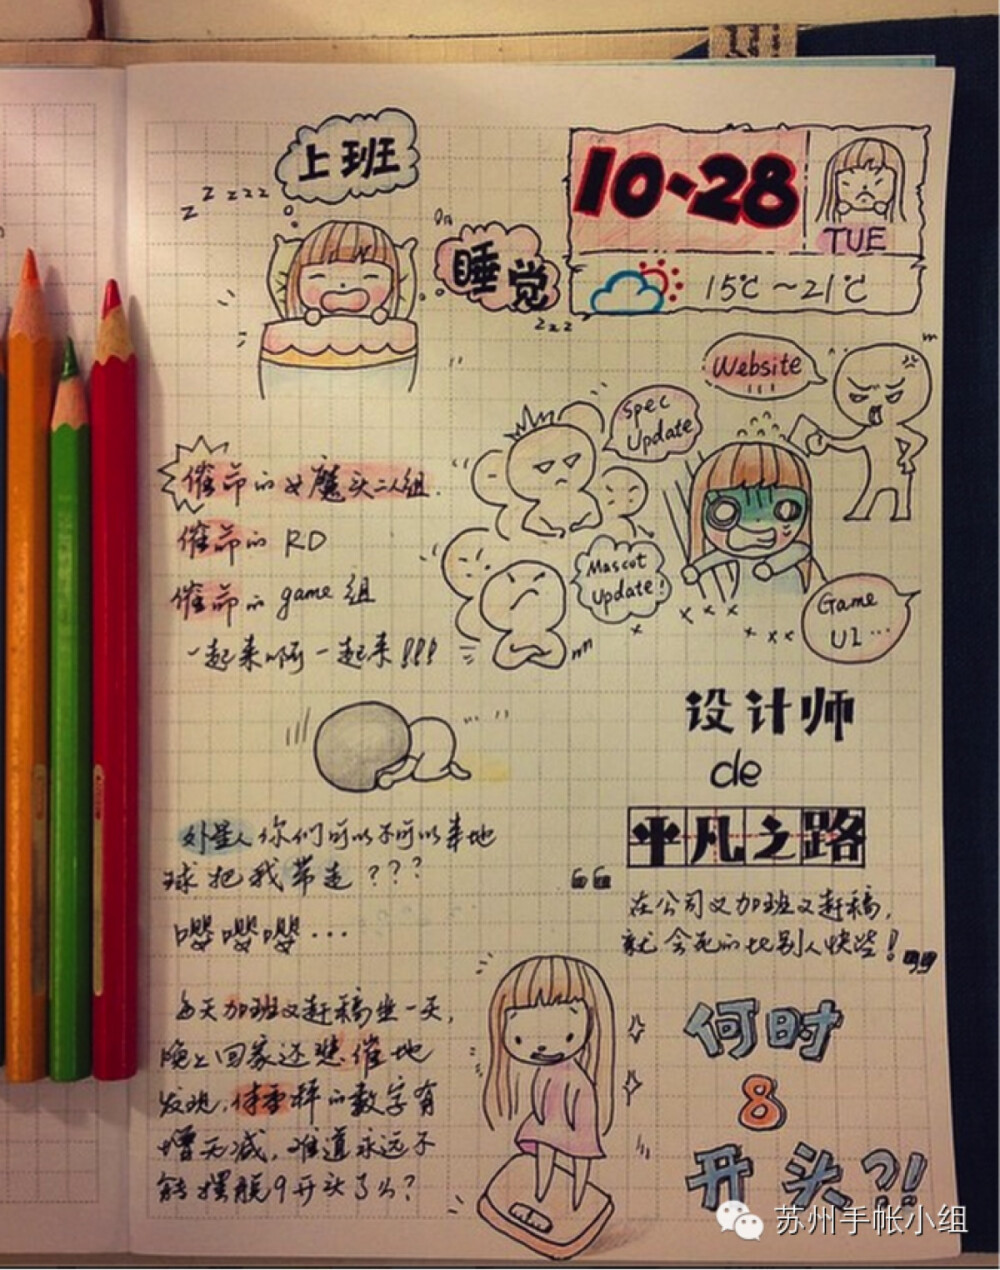 上班
z z z z z
睡觉
zzz
10-28
TUE
15℃~21℃
Website
Spec
Update
Mascot
Update!
Game
UI...
催命的女魔头二人组.
催命的 RD
催命的 game 组
一起来啊一起来!!!
设计师
de
平凡之路
外星人你们可以不可以来地
球把我带走???
嘤嘤嘤...
“在公司又加班又赶稿,
就会死的比别人快些!”
每天加班又赶稿坐一天,
晚上回家还悲催地
发现,体重秤的数字有
增无减,难道永远不
能摆脱9开头了么?
何时
8
开头?!
苏州手帐小组